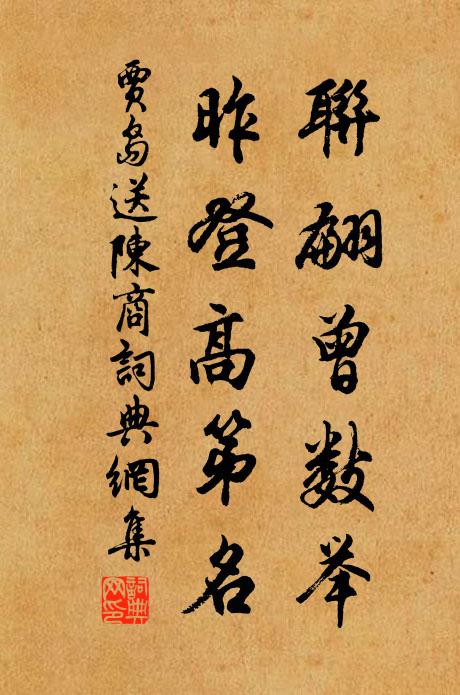 聯翩曾數举
昨登高第名
賈島送陳商詞典網集
詞典網印